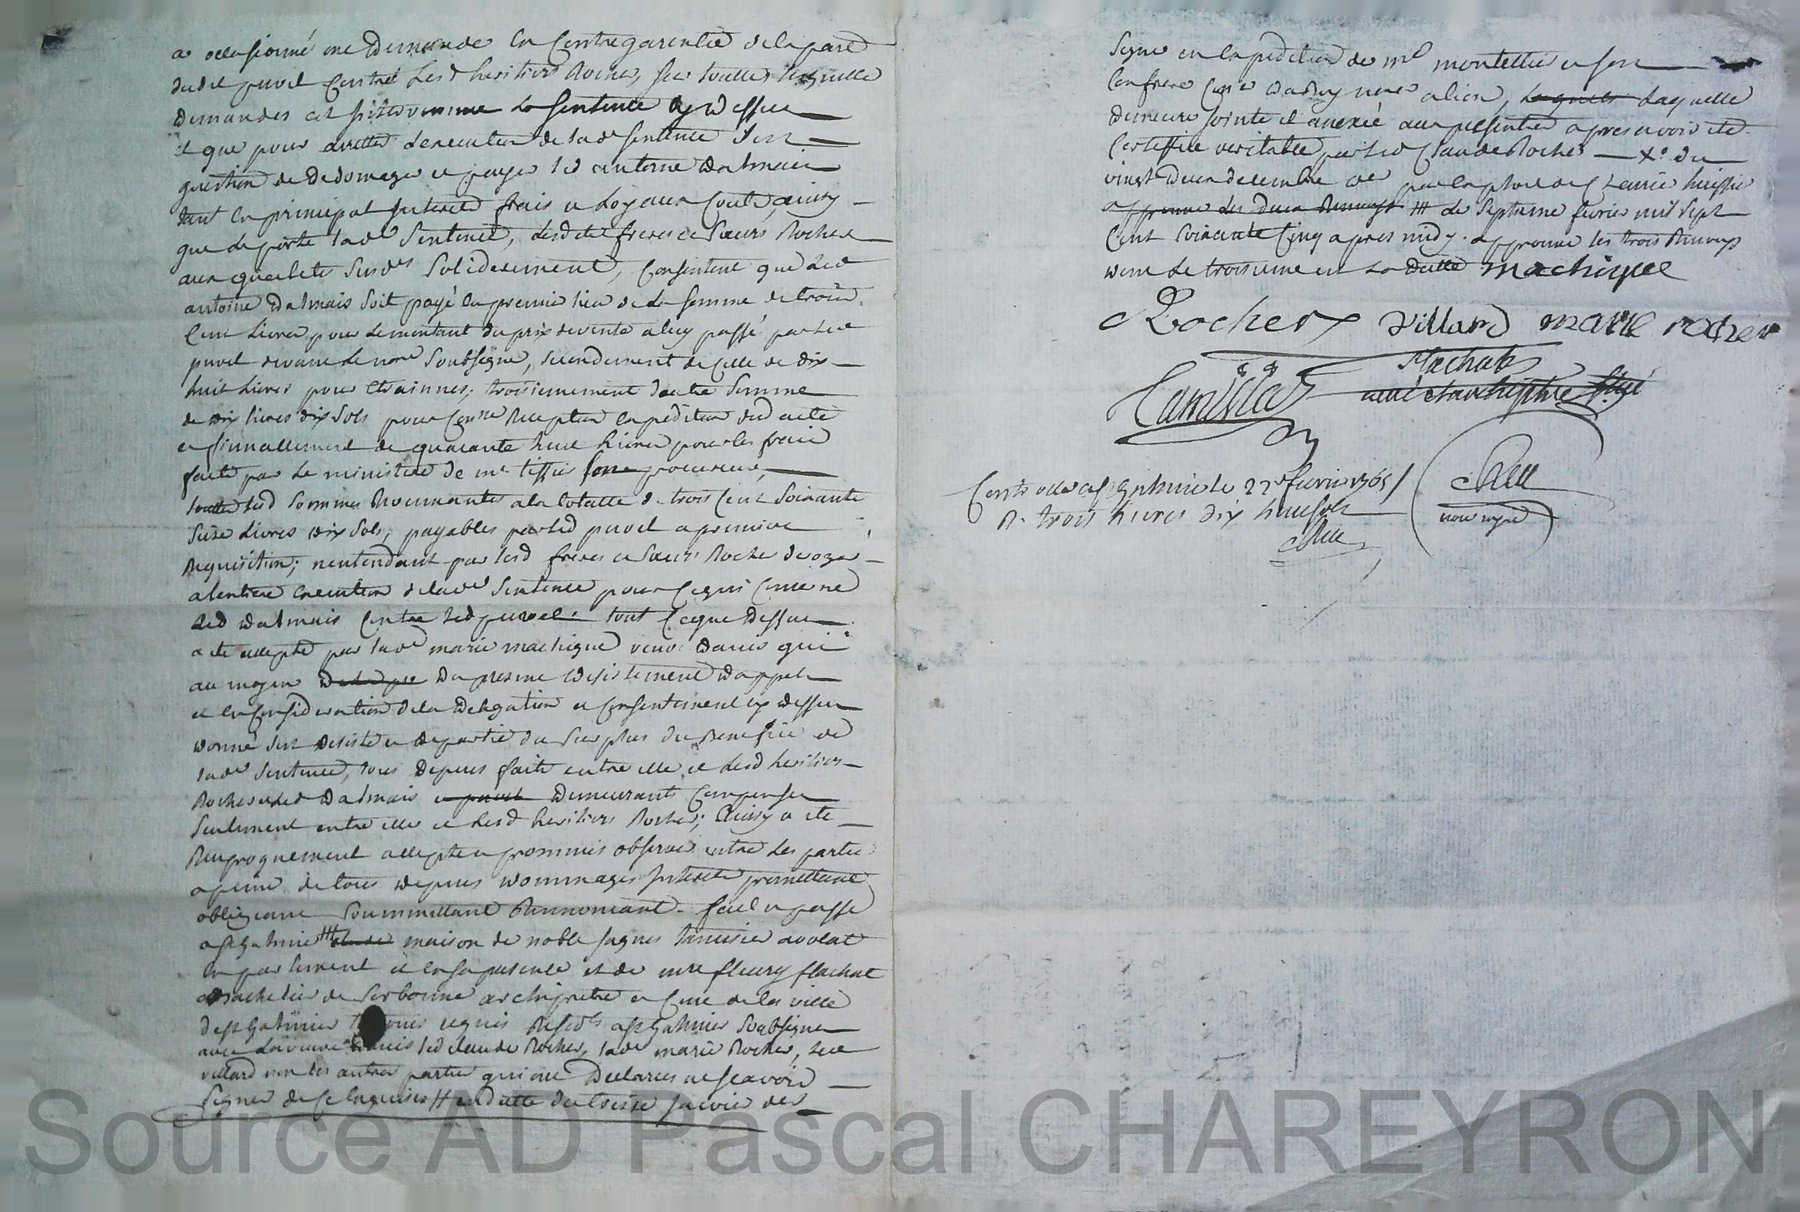 a occasionné une demande en contregarentie de la part
dudit puvel contre lesd heritiers Rocher, sur toutes lesquelles
demandes est intervenue la sentence cy dessus
et que pour arretter l'execution de lad sentence il est
question de dedomager et payer led antoine Dalmais
tant en principal interets frais et loyaux couts, ainsy
que le porte lad sentence, lesdits freres et soeurs Rocher
aux qualités susd solidairement, consentent que led
antoine Dalmais soit payé en premier lieu de la somme de trois
cent livres pour le montant du prix de vente a luy passé par led
puvel devant le no.re soubsigné, secondement de celle de dix
huit livres pour etrainnes, troisiemement d'autre somme
de dix livres dix sols pour reception expedition dud acte
et finallement de quarante huit livres pour les frais
faits par le ministere de me tissier son procureur,
lesd sommes revenantes a la totalle de trois cent soixante
seize livres dix sols, payables par led puvel a premiere
requisition; n'entendant par lesd freres et soeurs Rocher deroger
a l'entiere execution de lad sentence pour ce qui concerne
led Dalmais contre led puvel. tout ce que dessus
a eté accepté par lad marie machigue veuve Danis qui
au moyen du present desistement d'appel
et en consideration de la delegation et consentement cy dessus
donné s'est desistée et departie du surplus du benefice de
lad sentence, tous depens faits entre elle et lesd heritiers
Rocher et led Dalmais et puvel demeurants compensés
seulement entre elle et lesd heritiers Rocher; ainsy a eté
reciproquement accepté et prommis observer entre les parties
a peine de tous depens dommages interets promettant
obligeant soummettant renonceant. fait et passé
a st galmier maison de noble jaques tamisier avocat
en parlement et en sa presence et de mre fleury flachat
bachelier de sorbonne archipretre et curé de lad ville
de st galmier temoins requis resid.ts a st galmier soubsignés
avec lad veuve Danis led claude Rocher, lad marie Rocher, led
villard non les autres parties qui ont declarés ne scavoir
signer de ce enquis # en datte du treize janvier der
signé en expedition de me montellier et son
confrere laquelle
demeure jointe et anexée aux presentes apres avoir eté
certiffiée veritable par led Claude Rocher
vingt deux decembre
approuve les deux renvoys # le septieme fevrier mil sept
cent soixante cinq apres midy. approuvé les trois renvoys
dont le troisieme est la datte machigue
Rocher villard marie rocher
flachat
Tamisier
curé et archiprêtre
Controllé a st galmier le 22 fevrier 1765
R. trois livres dix huit sols